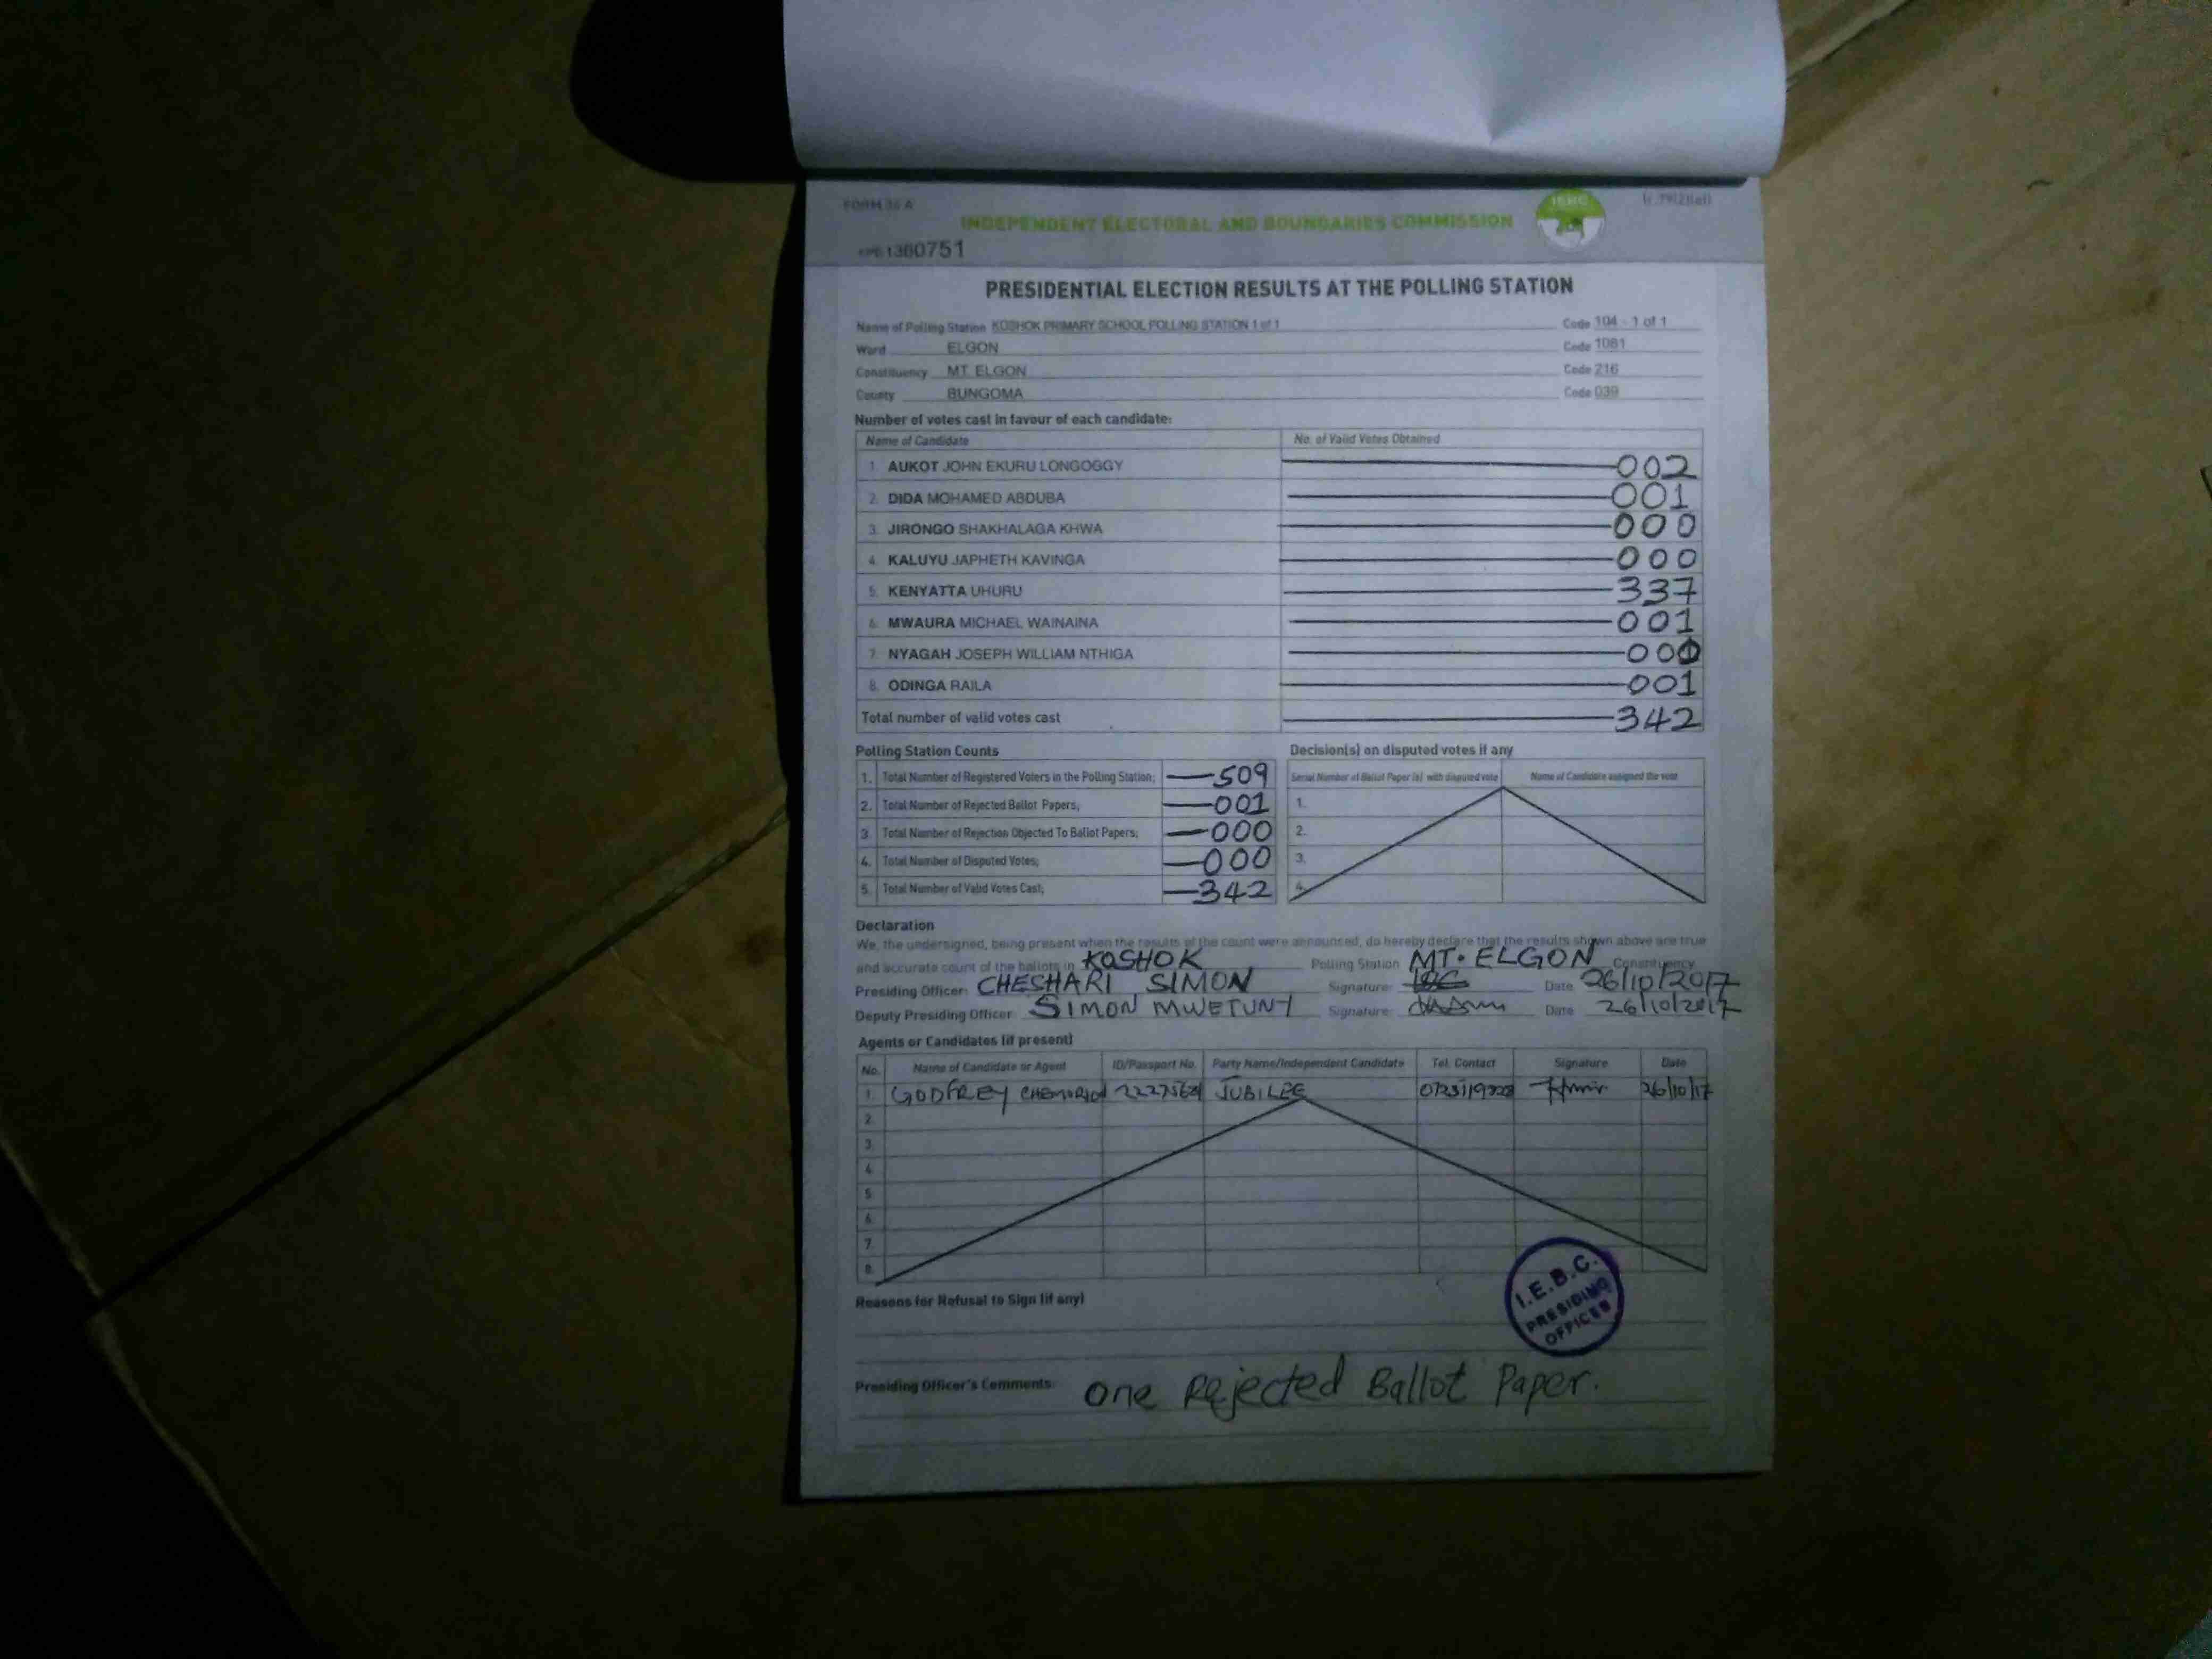 FORM 34 A
INDEPENDENT ELECTORAL AND BOUNDARIES COMMISSION
IEBC
1380751
PRESIDENTIAL ELECTION RESULTS AT THE POLLING STATION
Name of Polling Station KOSHOK PRIMARY SCHOOL POLLING STATION 1 of 1 Code 104 - 1 of 1
Ward ELGON Code 1081
Constituency MT. ELGON Code 216
County BUNGOMA Code 039
Number of votes cast in favour of each candidate:
Name of Candidate No. of Valid Votes Obtained
1. AUKOT JOHN EKURU LONGOGGY 002
2. DIDA MOHAMED ABDUBA 001
3. JIRONGO SHAKHALAGA KHWA 000
4. KALUYU JAPHETH KAVINGA 000
5. KENYATTA UHURU 337
6. MWAURA MICHAEL WAINAINA 001
7. NYAGAH JOSEPH WILLIAM NTHIGA 000
8. ODINGA RAILA 001
Total number of valid votes cast 342
Polling Station Counts
1. Total Number of Registered Voters in the Polling Station; 509
2. Total Number of Rejected Ballot Papers; 001
3. Total Number of Rejection Objected To Ballot Papers; 000
4. Total Number of Disputed Votes; 000
5. Total Number of Valid Votes Cast; 342
Decision(s) on disputed votes if any
Serial Number of Ballot Paper (s) with disputed vote Name of Candidate assigned the vote
1.
2.
3.
4.
Declaration
We, the undersigned, being present when the results of the count were announced, do hereby declare that the results shown above are true
and accurate count of the ballots in KOSHOK Polling Station MT. ELGON Constituency
Presiding Officer: CHESHARI SIMON Signature: Date 26/10/2017
Deputy Presiding Officer SIMON MWETUNY Signature: Date 26/10/2017
Agents or Candidates (if present)
No. Name of Candidate or Agent ID/Passport No. Party Name/Independent Candidate Tel. Contact Signature Date
1. GODFREY JUBILEE 26/10/17
2.
3.
4.
5.
6.
7.
8.
Reasons for Refusal to Sign (if any)
I.E.B.C.
PRESIDING
OFFICER
Presiding Officer's Comments: One Rejected Ballot Paper.